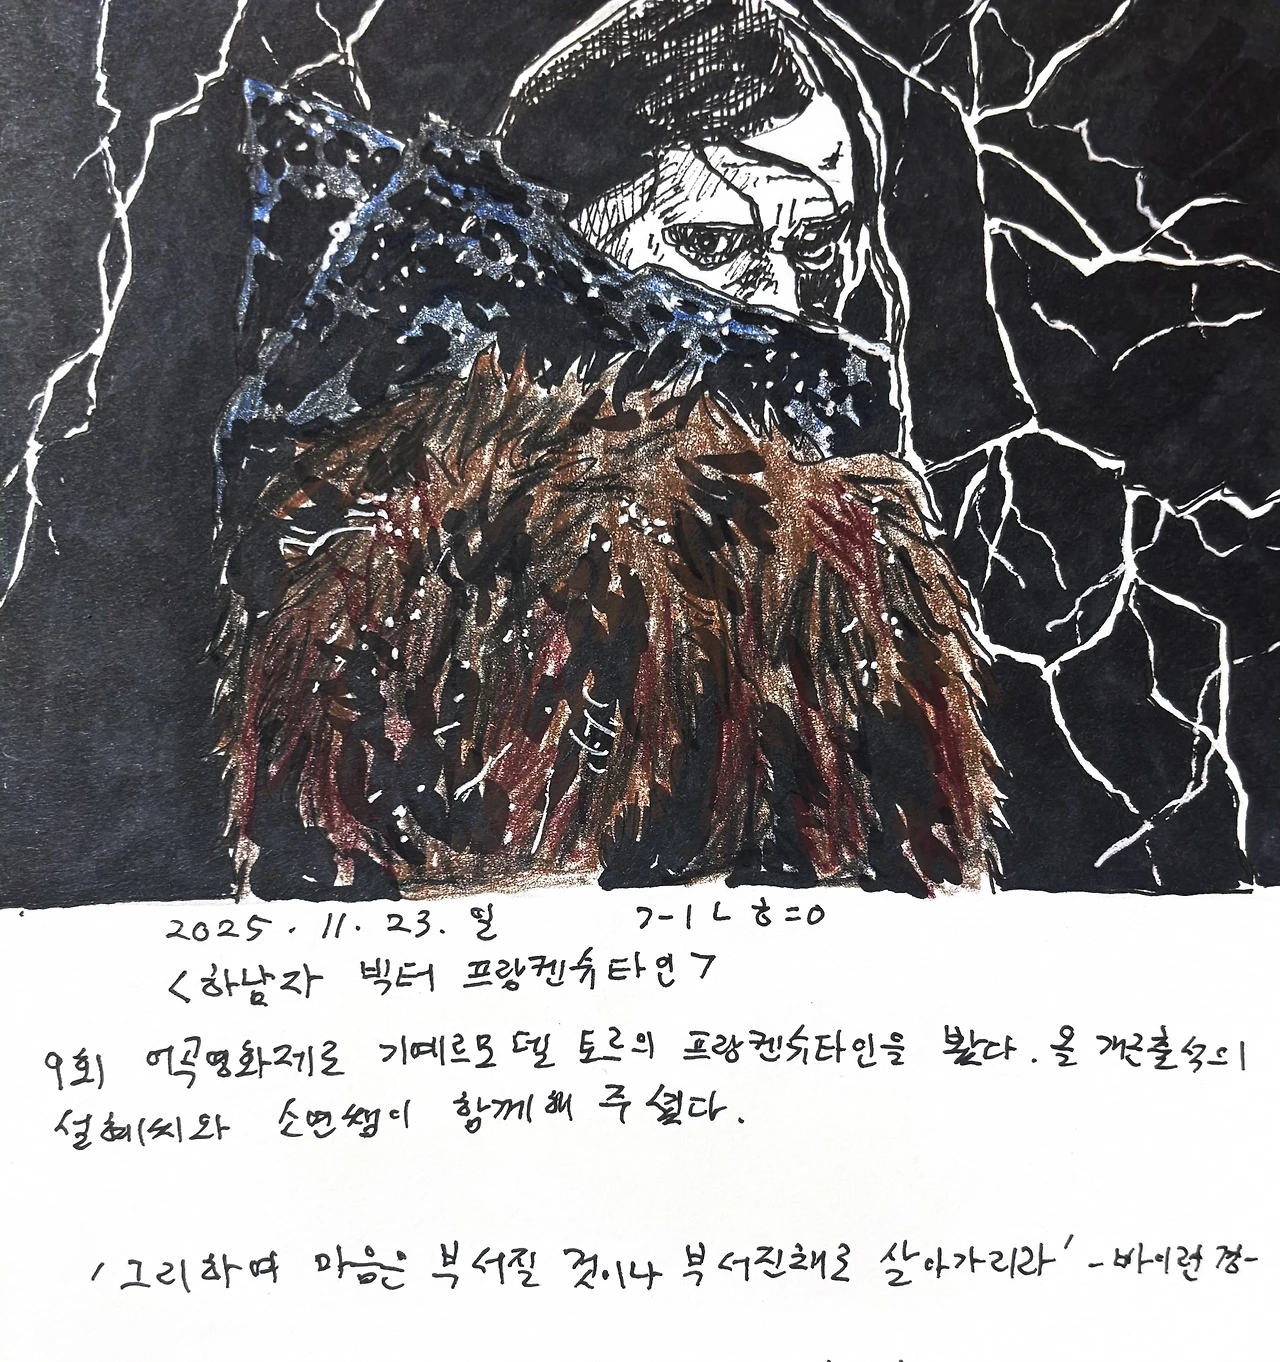 2025. 11. 23. 일
<하남자 빅터 프랑켄슈타인>
9회 어곡영화제로 기예르모 델 토르의 프랑켄슈타인을 봤다. 올 개근출석의
설혜씨와 소연쌤이 함께해 주셨다.
'그리하며 마음은 부서질 것이나 부서진채로 살아가리라' -바이런 경-